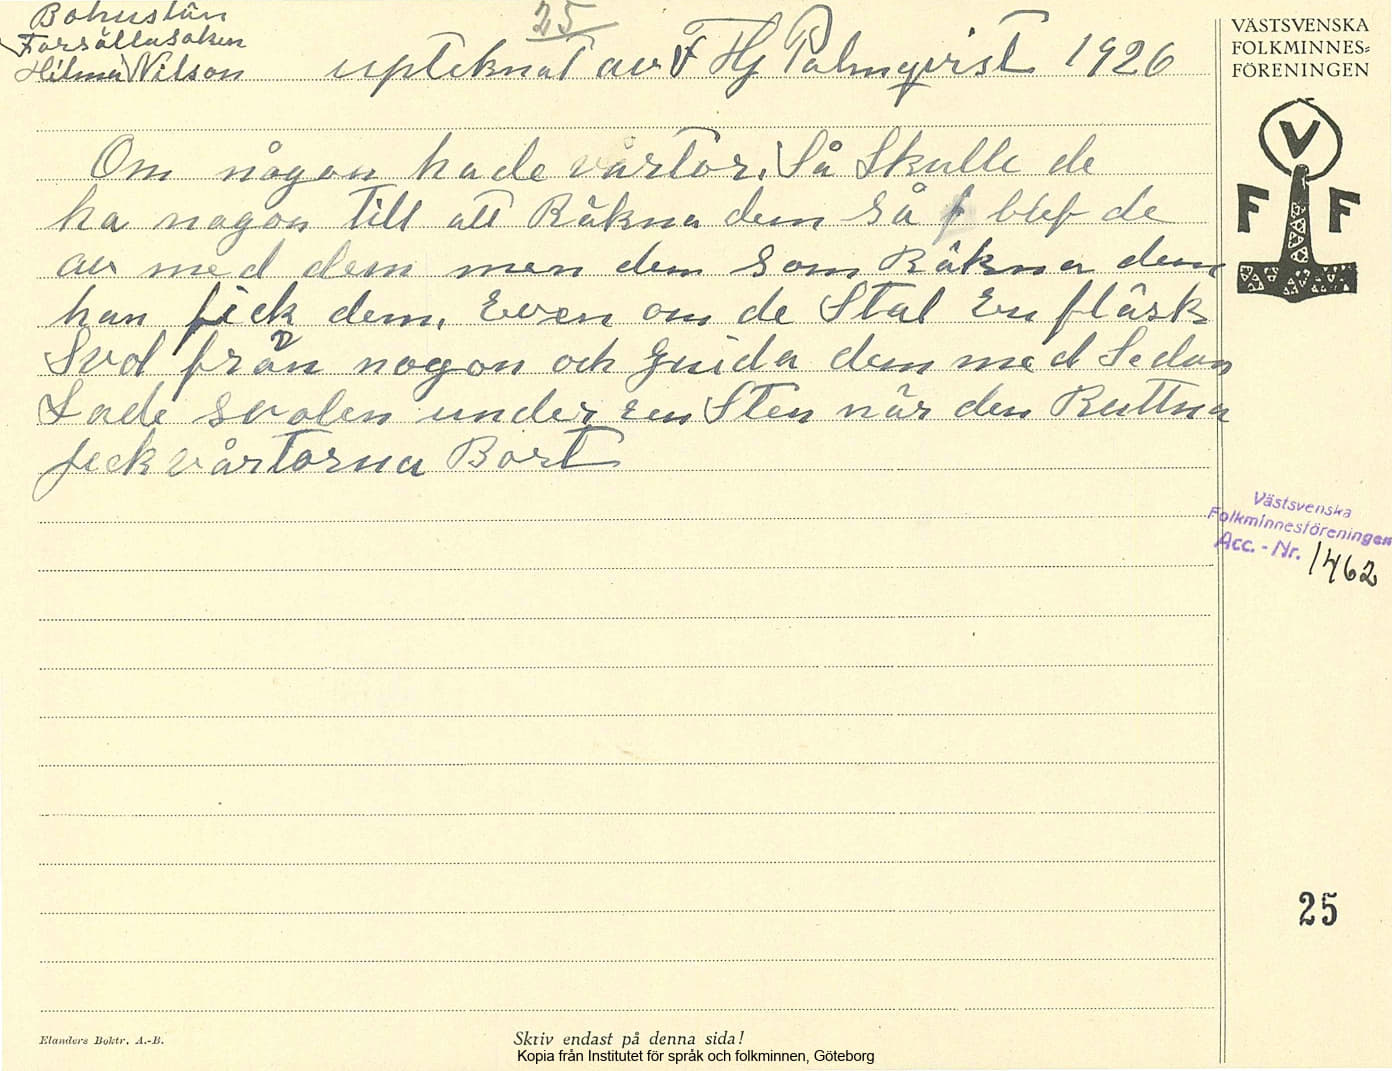 Bohuslän
Forsällasoken
Hilma Nilson
25
upteknat av F Hj Palmqvist 1926
VÄSTSVENSKA
FOLKMINNES=
FÖRENINGEN
V
F F
Om någon hade vårtor. Så Skulle de
ha nagon till att Räkna dem så blef de
av med dem men dem som Räkna dem
han fick dem. Even om de Stal En fläsk
Svol från nogon och Gnida dem med Sedan
Lade svolen under en Sten när den Ruttna
feck vårtorna Bort
Västsvenska
Folkminnesföreningen
Acc. - Nr. 1462
25
Elanders Boktr. A.-B.
Skriv endast på denna sida!
Kopia från Institutet för språk och folkminnen, Göteborg